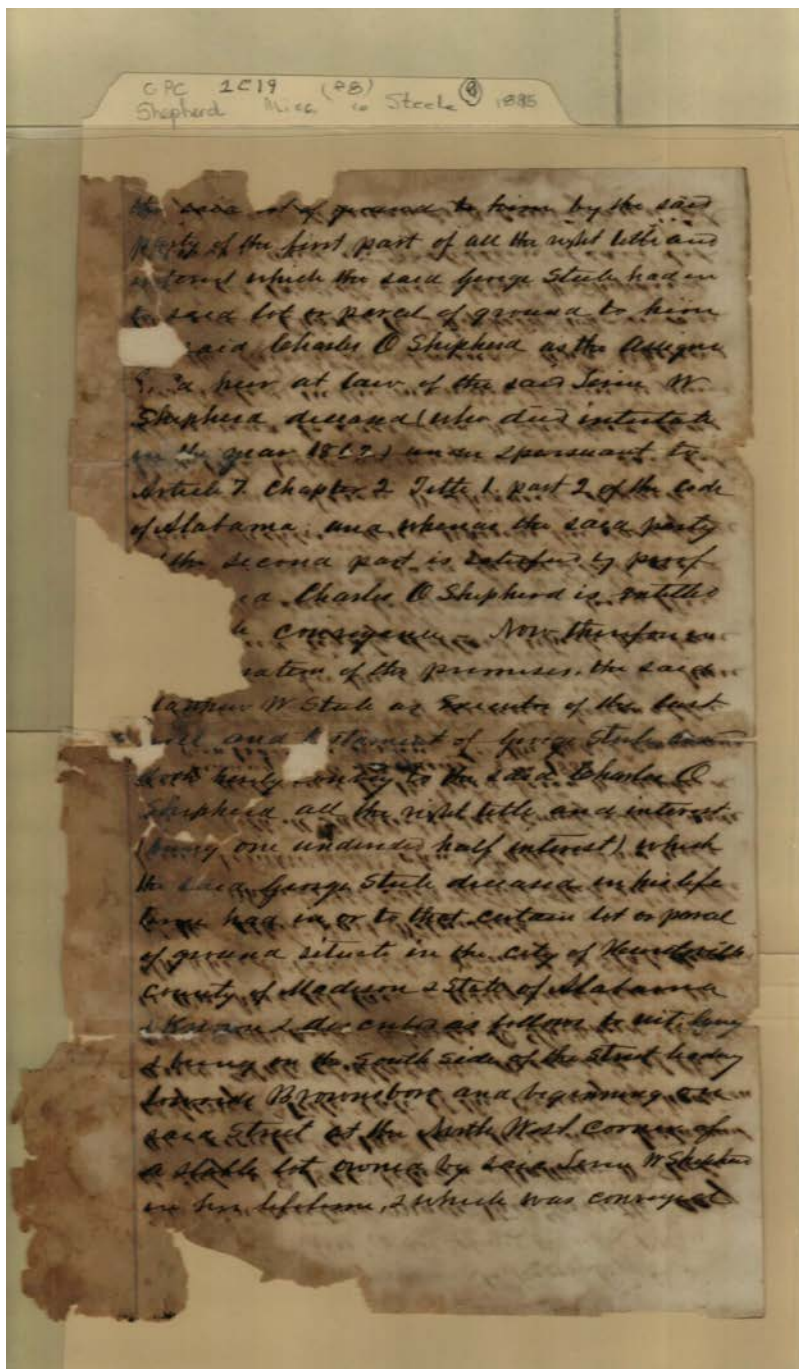 GPC 2C19 (PB) 8
Shepherd Misc. to Steele 1885
the said lot of ground to him by the said
party of the first part of all the right title and
interest which the said George Steele had in
to said lot or parcel of ground to him
said Charles O Shepherd as the assignee
heir at law of the said W
Shepherd deceased (who died intestate
in the year under & pursuant to
Article 7. Chapter 2 Title 1. part 2 of the Code
of Alabama. and whereas the said party
the second part is satisfied by proof
Charles O Shepherd is entitled
conveyance. Now therefore in
of the premises. the said
W Steele as Executor of the last
and testament of George Steele
doth hereby convey to the said Charles O
Shepherd all the right title and interest
(being one undivided half interest) which
the said George Steele deceased in his life
time had in or to that certain lot or parcel
of ground situate in the city of Huntsville
County of Madison & State of Alabama
& known & described as follows to wit. lying
& being on the South Side of the Street leading
towards Brownsboro and beginning on
said Street at the North West Corner of
a stable lot owned by said W Shepherd
in his lifetime, & which was conveyed